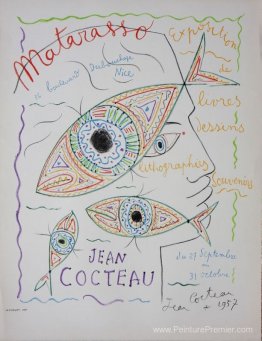 Matarasso
Exposition
de
livres
dessins
lithographies
souvenirs
Nice
JEAN
COCTEAU
du 27 Septembre
au
31 octobre
Jean Cocteau
1957
www.PeinturePremier.com